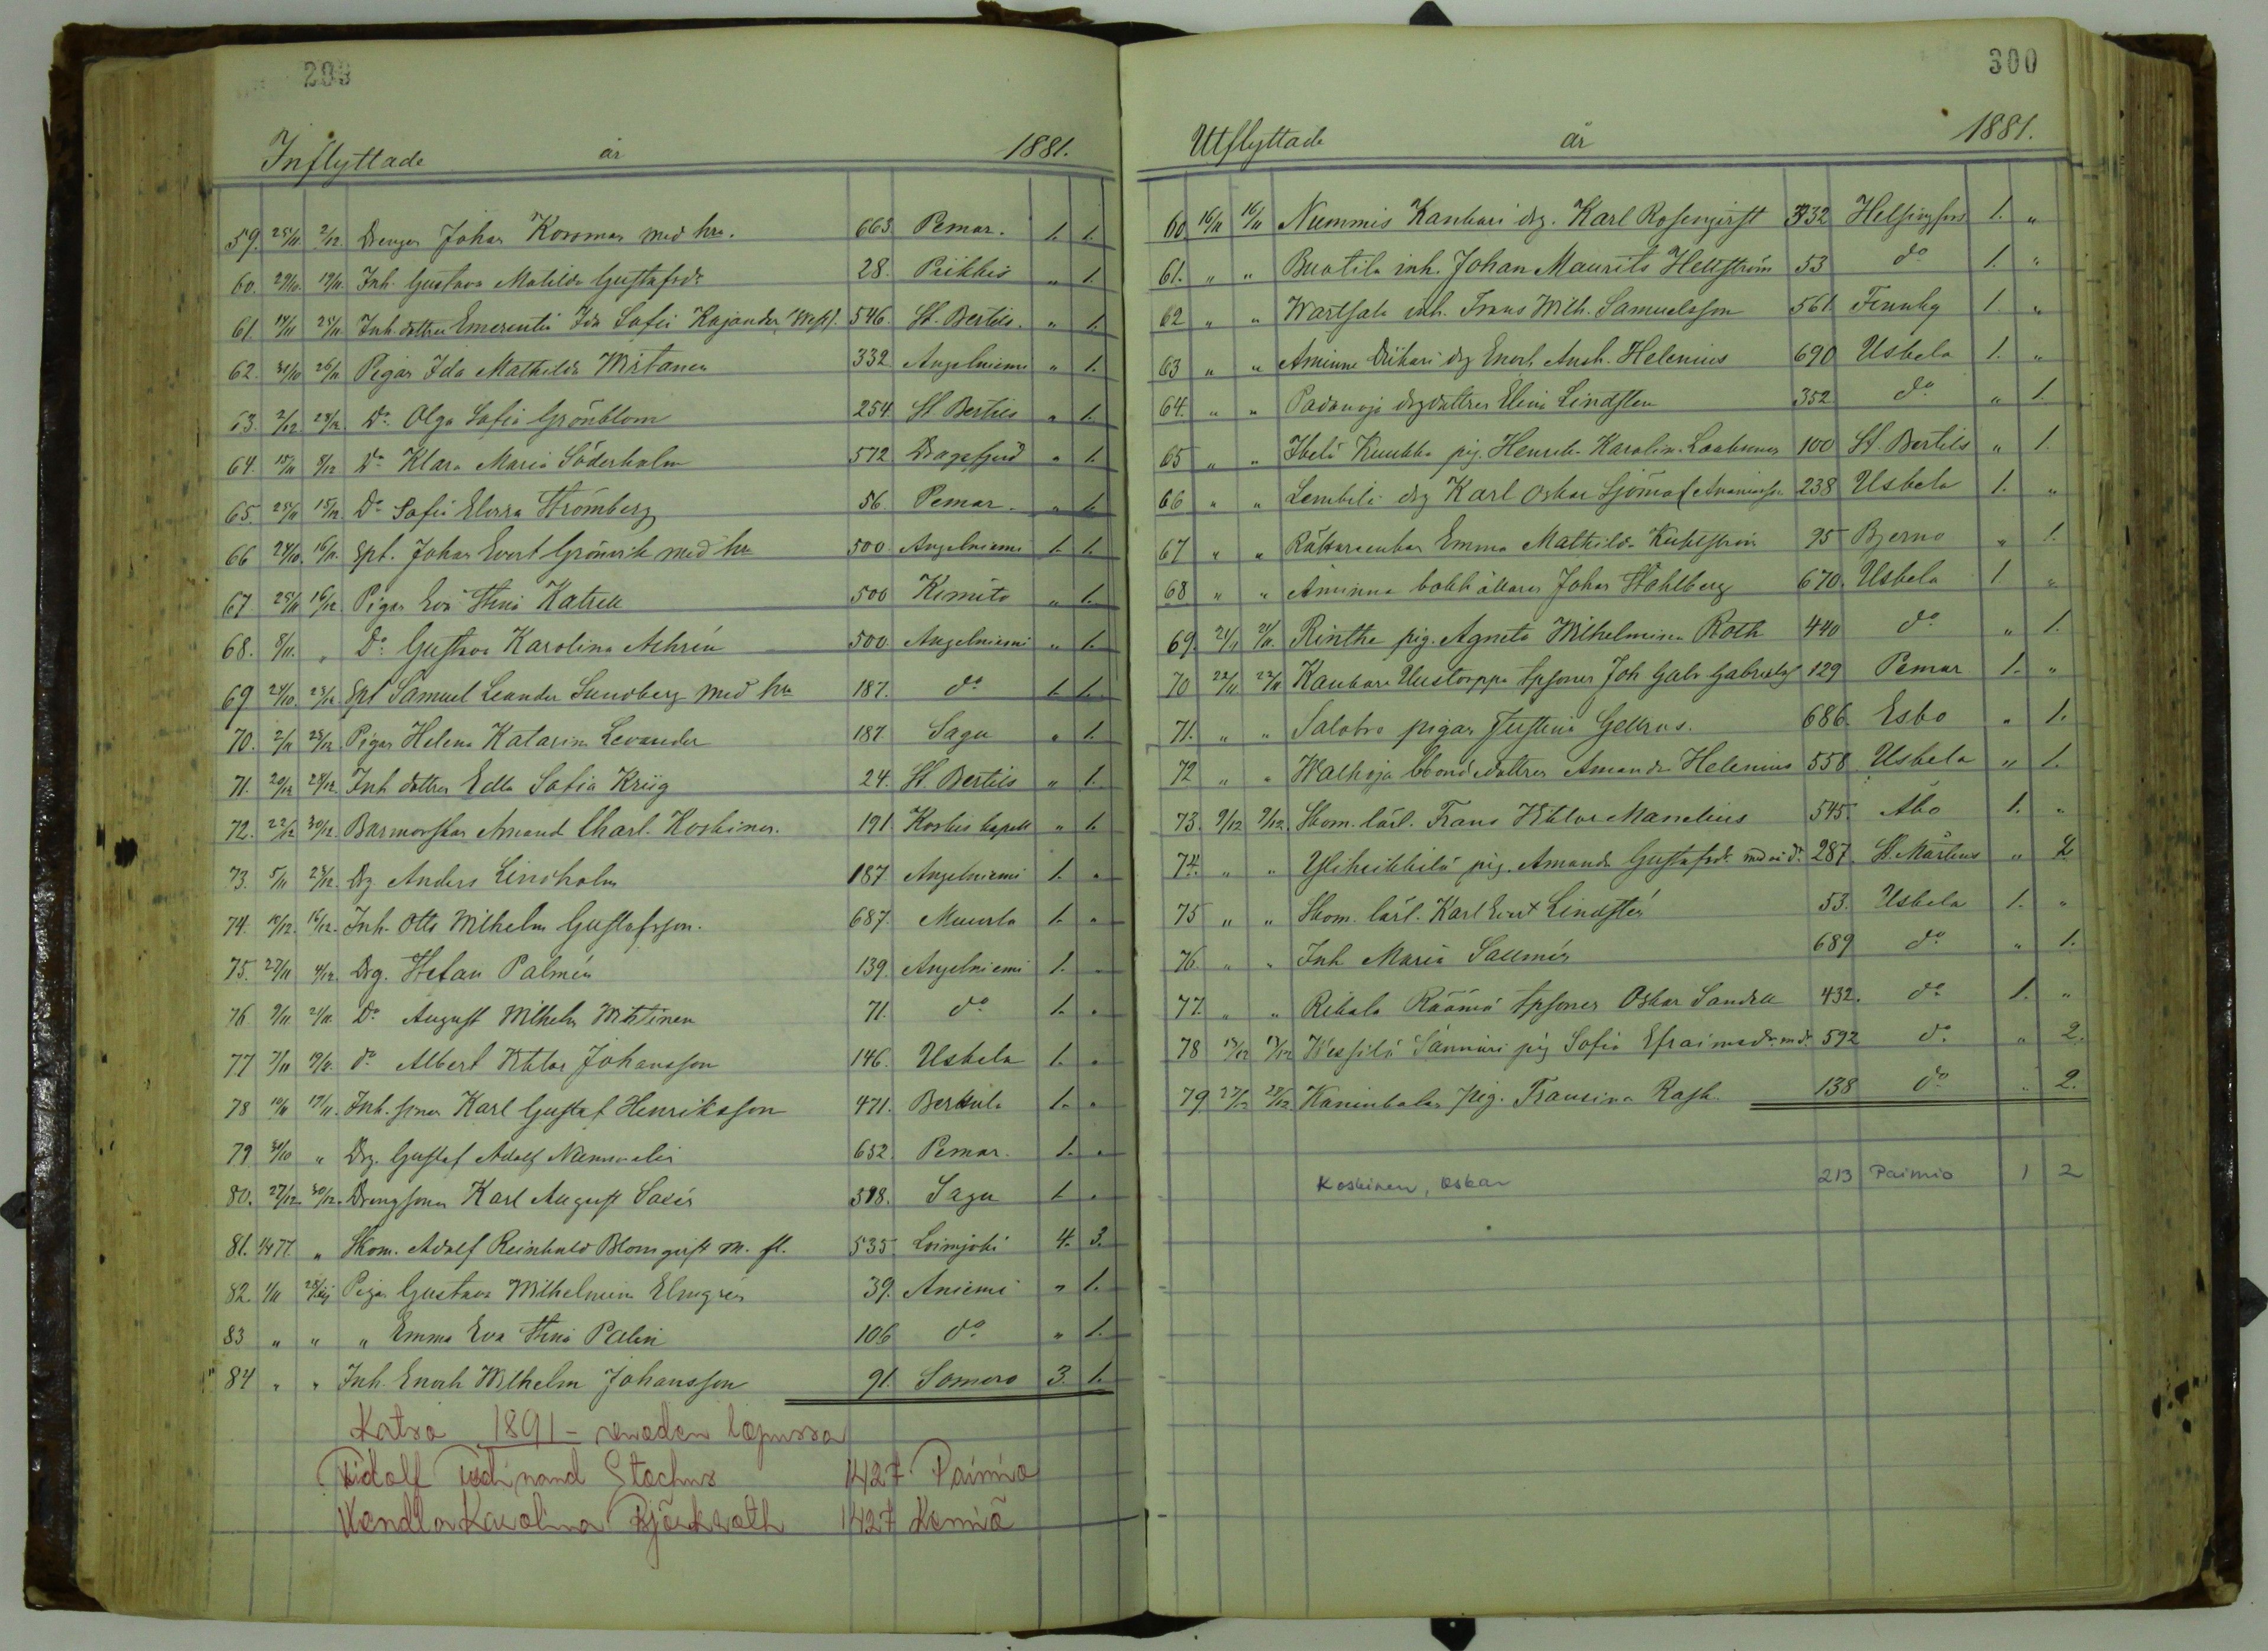 299
Inflyttade år 1881.
59. 25/11 2/12 Drengen Johan Koroma med hu. 663 Pemar. 1. 1.
60. 29/10. 19/11. Inh. Gustava Matilda Gustafsdr 28. Piikkis " 1.
61. 14/11 25/11 Inh. dottren Emerentia Ida Sofia Kajander 546. St. Bertils. " 1.
62. 31/10 26/11 Pigan Ida Mathilda Wirtanen 332 Angelniemi " 1.
63. 2/12. Do Olga Sofia Grönblom 254 St Bertils " 1.
64. 15/11 9/12 Do Klara Maria Söderholm 572 Dragsfjerd " 1.
65. 25/11 15/12. Do Sofia Elvira Strömberg 56 Pemar. " 1.
66 24/10. Spt. Johan Evert Grönvik med hu 500 Angelniemi 1. 1.
67. 25/11 16/12 Pigan Eva Stina Katrell 500 Kimito " 1.
68. 8/11. " Do Gustava Karolina Achrén 500. Angelniemi " 1.
69 24/10. 23/12. Spt Samuel Leander Sundberg med hu 187. do 1. 1.
70. 2/11 23/12 Pigan Helena Katarina Levander 187 Sagu " 1.
71. 20/12 28/12. Inh dottren Edla Sofia Kriig 24. St. Bertils " 1.
72. 22/12 30/12. Barmorskan Amand Charl. Koskinen. 191 Koskis kapell " 1.
73. 5/11 23/12. Drg Anders Lindholm 187 Angelniemi 1. "
74. 10/12. 16/12. Inh. Otto Wilhelm Gustafsson. 687. Muurla 1. "
75. 27/11 4/12. Drg. Stefan Palmén 139. Angelniemi 1. "
76 9/11 21/11. Do August Wilhelm Wirtinen 71. do 1. "
77 7/11 do Albert Viktor Johansson 146. Uskela 1. "
78 10/11 17/11. Inh. sonen Karl Gustaf Henriksson 471. 1. "
79 31/10 " Drg. Gustaf Adolf Nummelin 652 Pemar. 1. "
80. 27/12 30/12. Drengsonen Karl August Saxén 398. Sagu 1. "
81. " Skom. Adolf Reinhold Blomqvist m. fl. 535 Loimjoki 4. 3.
82. 1/11 Pigan Gustava Wilhelmina Elmgrén 39. Aniemi " 1.
83 " " " Emma Eva Stina Palin 106 do " 1.
84 " " Inh. Enoch Wilhelm Johansson 91. Somero 3. 1.
Katso 1891 - vuoden lopussa
Fidolf Ferdinand Stachus 1427 Paimio
Wendla Karolina Björkroth 1427 Kemiö
300
Utflyttade år 1881.
60 16/11 16/11 Nummis Kankari drg. Karl Rosenqvist 332 Helsingfors 1. "
61. " " Buotila inh. Johan Maurits Hellström 53 do 1. "
62 " " Wartsala inh. Frans Wilh. Samuelsson 561. Finnby 1. "
63 " " Aminne drg Enoch Helenius 690 Uskela 1. "
64. " " Padanoja drgdottren Elina Lindsten 352 do " 1.
65 " " Ihelä Kuukka pig. Henrik. Karolin. 100 St. Bertils " 1.
66 " " drg Karl Oskar Sjöman 238 Uskela 1. "
67 " " Emma Mathilda Kuhlström 95 Bjerno " 1.
68 " " Aminne bokhållaren Johan Ståhlberg 670. Uskela 1 "
69. 21/11 21/11. Rinthe pig. Agneta Wilhelmina Roth 440 do " 1.
70 22/11 22/11 Kankare Uustorppa tpsonen Joh Gabr Gabrielss 129 Pemar 1. "
71. " " Salobro pigan Justina Gellrus. 686. Esbo " 1.
72 " " Walhoja bondedottren Amanda Helenius 558. Uskela " 1.
73. 9/12 9/12. Skom. lärl. Frans Viktor Manelius 545. Åbo 1. "
74. " " Yliheikkilä pig. Amanda Gustafsdr 287. St. Mårtens " 2.
75 " " Skom. lärl. Karl Evert Lindstén 53. Uskela 1. "
76. " " Inh Maria Sallmén 689 do " 1.
77. " " Rikala Räämä tpsonen Oskar Sandell 432. do 1. "
78 13/12 13/12 Wessilä pig Sofia Efraimsdr. 592 do " 2.
79 27/12 28/12 pig. Fransina Rask. 138 do " 2.
Koskinen, Oskar 213 Paimio 1 2